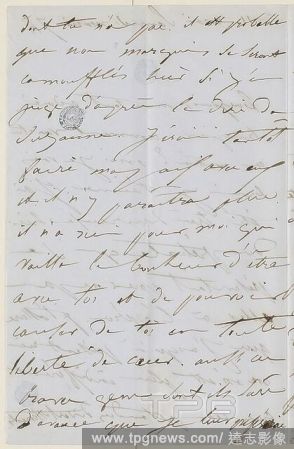 dont tu n'a pas. il est probable
que nos marques se seront
camouflés hier si j'en
juge d'après le dire de
Suzanne. J'irai tantôt
faire mon
et il n'y paraitra plus.
il n'a rien pour moi qui
vaille le bonheur d'être
avec toi et de pouvoir
causer de toi en toute
liberté de cœur. aussi ces
braves gens dont
d'avance que je
TPG
www.tpgnews.com / 達志影像